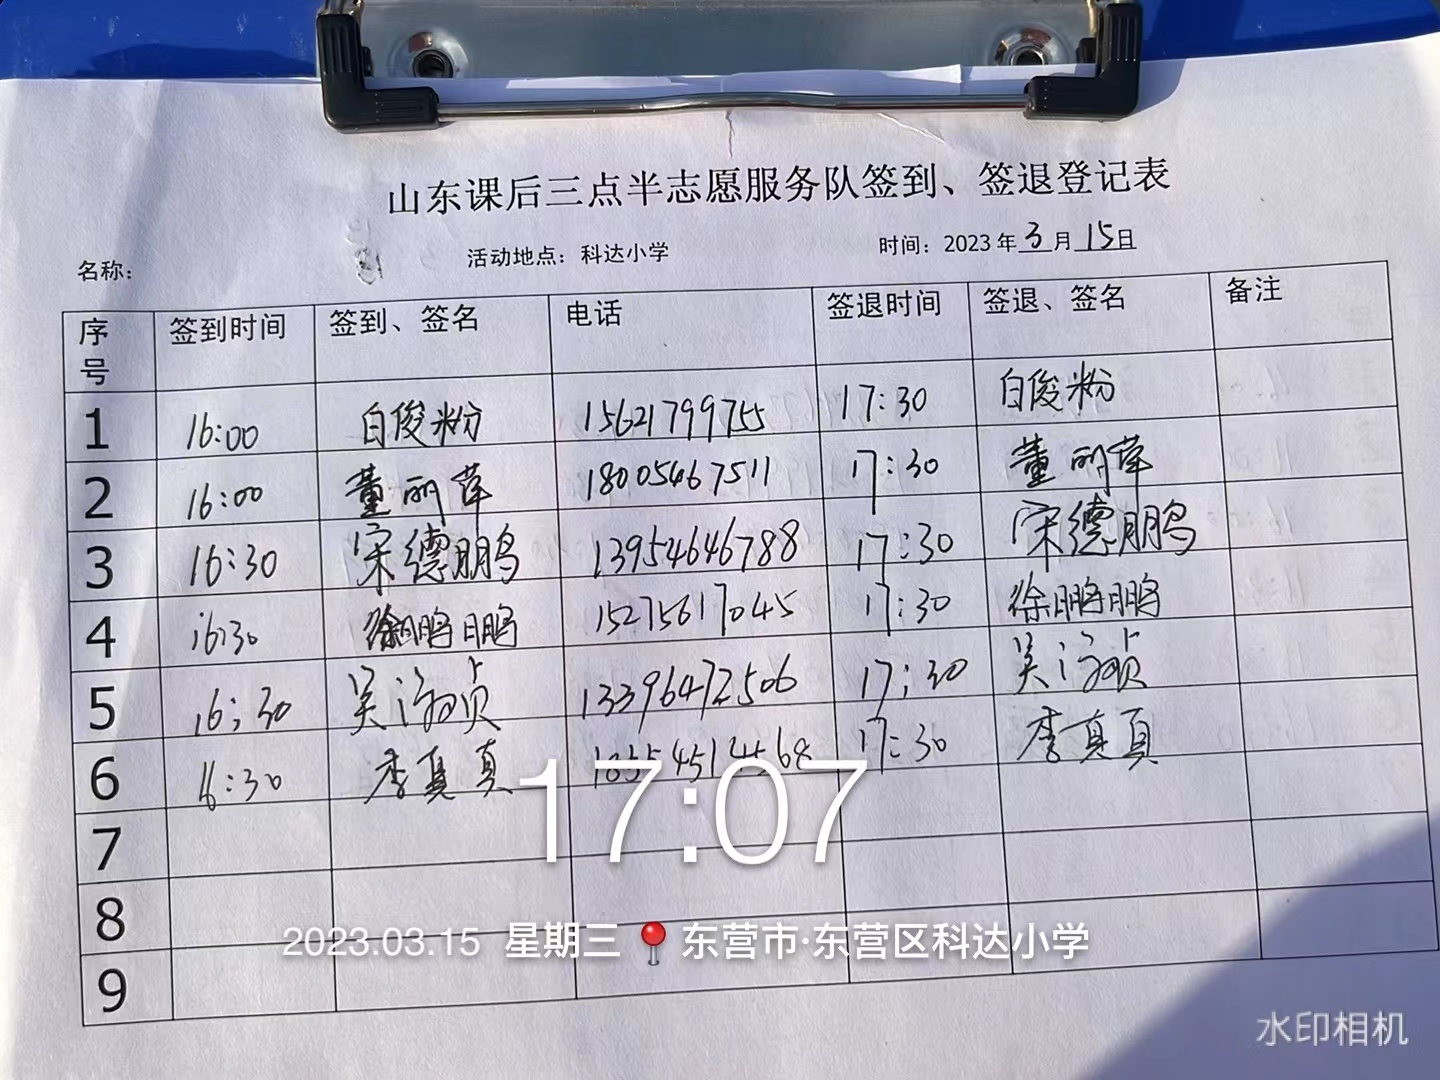 山东课后三点半志愿服务队签到、签退登记表
名称： 活动地点：科达小学 时间：2023年3月15日
序号 签到时间 签到、签名 电话 签退时间 签退、签名 备注
1 16:00 白俊粉 15621799755 17:30 白俊粉
2 16:00 董丽萍 18005467511 17:30 董丽萍
3 16:30 宋德鹏 13954646788 17:30 宋德鹏
4 16:30 徐鹏鹏 15275617045 17:30 徐鹏鹏
5 16:30 吴 贞 13396472506 17:30 吴 贞
6 16:30 李真真 17:30 李真真
7
8
9
17:07
2023.03.15 星期三 东营市·东营区科达小学
水印相机